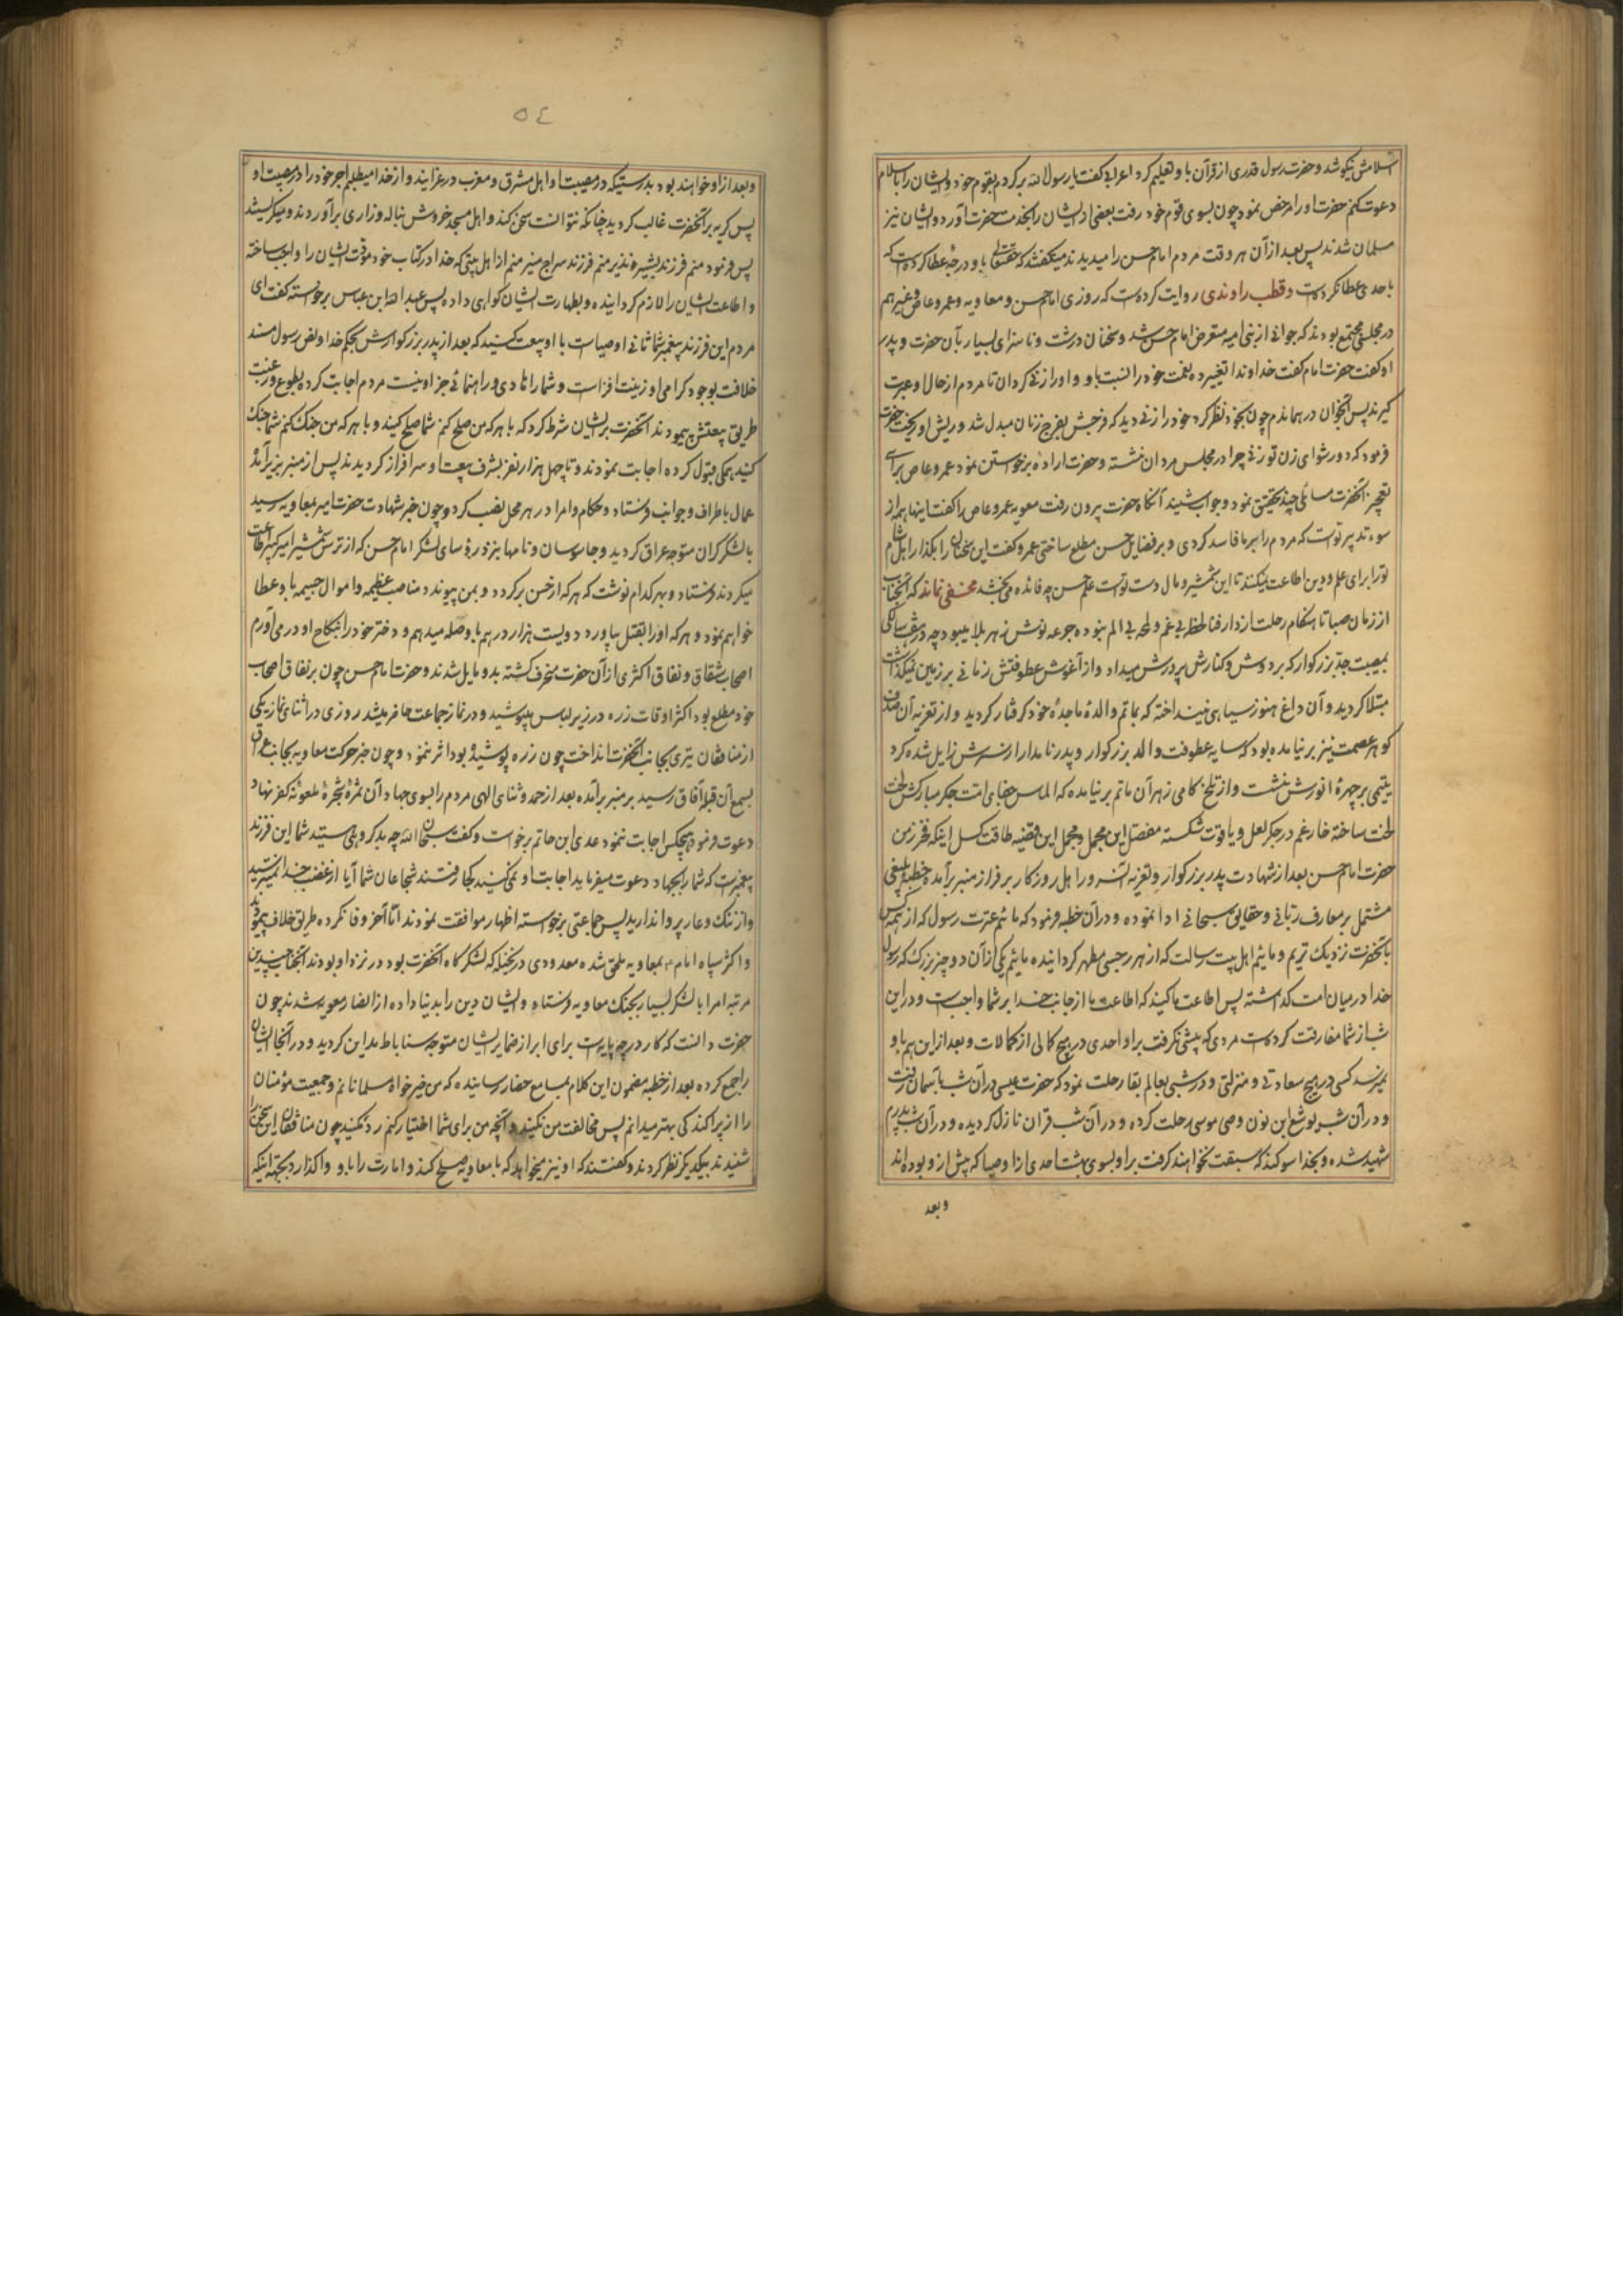 اسلامش نیکو شد و حضرت رسول قدری از قرآن باو تعلیم کرد اعرابی گفت یا رسول الله برگردم بقوم خود و ایشان را باسلام
دعوت کنم حضرت او را مرخص نمود چون بسوی قوم خود رفت بعضی از ایشان را بخدمت حضرت آورد و ایشان نیز
مسلمان شدند پس بعد از آن هر وقت مردم امام حسن را میدیدند میگفتند که حقتعالی باو درجهٔ عطا کرده است که
باحدی عطا نکرده است و قطب راوندی روایت کرده است که روزی امام حسن و معاویه و عمرو عاص و غیرهم
در مجلسی مجتمع بودند که جوانی از بنی امیه متعرض امام حسن شد و سخنان درشت و ناسزای بسیار بآن حضرت و پدر
او گفت حضرت امام گفت خداوندا تغییر ده نعمت خود را نسبت باو و او را زنی گردان تا مردم از حال او عبرت
گیرند پس آنجوان در همان دم چون بخود نظر کرد خود را زنی دید که فرجش بفرج زنان مبدل شد و ریش او ریخت حضرت
فرمود که دور شو ای زن تو زنی چرا در مجلس مردان نشسته و حضرت اراده برخواستن نمود عمرو عاص برای
تعجیز آنحضرت مسائلی چند تحقیق نمود و جواب شنید آنگاه حضرت بیرون رفت معویه عمرو عاص را گفت اینها همه از
سوء تدبیر توست که مردم را بر ما فاسد کردی و بر فضایل حسن مطلع ساختی عمرو گفت این سخنان را بگذار اهل شام
ترا برای علم و دین اطاعت نمیکنند تا این شمشیر و مال دست توست علم حسن چه فائده می بخشد مخفی نماند که آنجناب
از زمان صبا تا هنگام رحلت از دار فنا لحظه بی غم و لمحه بی الم نبوده جرعه نوش زهر بلا میبود چه در هفت سالگی
بمصیبت جد بزرگوار که بر دوش و کنارش پرورش میداد و از آغوش عطوفتش زمانی بر زمین نمیگذاشت
مبتلا گردید و آن داغ هنوز سیاهی نینداخته که بماتم والدهٔ ماجدهٔ خود گرفتار گردید و از تعزیه آن صدف
گوهر عصمت نیز برنیامده بود که سایه عطوفت والد بزرگوار و پدر نامدار از سرش زایل شده گرد
یتیمی بر چهرهٔ انورش نشست و از تلخ کامی زهر آن ماتم برنیامده که الماس جفای امت جگر مبارکش لخت
لخت ساخته خار غم در جگر لعل و یاقوت شکسته مفصل این مجمل و مجمل این قضیه طاقت گسل اینکه فخر زمن
حضرت امام حسن بعد از شهادت پدر بزرگوار و تعزیه آن سرور اهل روزگار بر فراز منبر برآمده خطبهٔ بلیغی
مشتمل بر معارف ربانی و حقایق سبحانی ادا نموده و در آن خطبه فرمود که مائیم عترت رسول که از همه کس
بآنحضرت نزدیک تریم و مائیم اهل بیت رسالت که از هر رجسی مطهر گردانیده مائیم یکی از آن دو چیز بزرگ که رسول
خدا در میان امت گذاشته پس اطاعت ما کنید که اطاعت ما از جانب خدا بر شما واجبست و در این
شب از شما مفارقت کرده است مردی که پیشی نگرفت بر او احدی در هیچ کمالی از کمالات و بعد از این هم باو
نمیرسد کسی در هیچ سعادتی و منزلتی و در شبی بعالم بقا رحلت نمود که حضرت عیسی در آن شب بآسمان رفت
و در آن شب یوشع ابن نون وصی موسی رحلت کرده و در آن شب قرآن نازل گردیده و در آن شب پدرم
شهید شده و بخدا سوگند که سبقت نخواهند گرفت بر او بسوی بهشت احدی از اوصیا که پیش از او بوده اند
و بعد
٥٤
و بعد از او خواهند بود بدرستیکه در مصیبت او اهل مشرق و مغرب در عزایند و از خدا میطلبم اجر خود را در مصیبت او
پس گریه بر آنحضرت غالب گردید چنانکه نتوانست سخن کند و اهل مسجد خروش بناله و زاری برآوردند و میگریستند
پس فرمود منم فرزند بشیر و نذیر منم فرزند سراج منیر منم از اهل بیتی که خدا در کتاب خود مودت ایشان را واجب ساخته
و اطاعت ایشان را لازم گردانیده و بطهارت ایشان گواهی داده پس عبدالله ابن عباس برخواسته گفت ای
مردم این فرزند پیغمبر شما ثانی اوصیاست با او بیعت کنید که بعد از پدر بزرگوارش بحکم خدا و نص رسول مسند
خلافت بوجود گرامی او زینت افزاست و شما را هادی و راهنمائی جز او نیست مردم اجابت کرده بطوع و رغبت
طریق بیعتش پیمودند آنحضرت بر ایشان شرط کرد که با هر که من صلح کنم شما صلح کنید و با هر که من جنگ کنم شما جنگ
کنید همگی قبول کرده اجابت نمودند و تا چهل هزار نفر بشرف بیعت او سرافراز گردیدند پس از منبر بزیر آمد
عمال باطراف و جوانب فرستاد و حکام و امرا در هر محل نصب کرد و چون خبر شهادت حضرت امیر بمعاویه رسید
با لشکر گران متوجه عراق گردید و جاسوسان و نامها بنزد رؤسای لشکر امام حسن که از ترس شمشیر امیر کبیر اطاعت
میکردند فرستاد و بهر کدام نوشت که هر که از حسن برگردد و بمن پیوندد مناصب عظیمه و اموال جسیمه باو عطا
خواهم نمود و هر که او را بقتل بیاورد دویست هزار درهم باو صله میدهم و دختر خود را بنکاح او در می آورم
اصحاب شقاق و نفاق اکثری از آن حضرت منحرف گشته بدو مایل شدند و حضرت امام حسن چون بر نفاق اصحاب
خود مطلع بود اکثر اوقات زره در زیر لباس میپوشید و در نماز جماعت حاضر میشد روزی در اثنای نماز یکی
از منافقان تیری بجانب آنحضرت انداخت چون زره پوشیده بود اثر ننمود و چون خبر حرکت معاویه بجانب عراق
بسمع آن قبلهٔ آفاق رسید بر منبر برآمده بعد از حمد و ثنای الهی مردم را بسوی جهاد آن ثمرهٔ شجرهٔ ملعونه کفر نهاد
دعوت فرمود هیچکس اجابت ننمود عدی ابن حاتم برخواست و گفت سبحان الله چه بد گروهی هستید شما این فرزند
پیغمبرست که شما را بجهاد دعوت میفرماید اجابت او نمی کنید کجا رفتند شجاعان شما آیا از غضب خدا نمیترسید
و از ننگ و عار پروا ندارید پس جماعتی برخواسته اظهار موافقت نمودند اما آخر وفا نکرده طریق خلاف پیمودند
و اکثر سپاه امام بمعاویه ملحق شده معدودی در نخیله که لشکرگاه آنحضرت بود در نزد او بودند آنجناب چندین
مرتبه امرا با لشکر بسیار بجنگ معاویه فرستاد و ایشان دین را بدنیا داده از انصار معویه شدند چون
حضرت دانست که کار در چه پایه است برای ابراز ضمایر ایشان متوجه ساباط مداین گردید و در آنجا ایشان
را جمع کرده بعد از خطبه مضمون این کلام بمسامع حضار رسانیده که من خیرخواه مسلمانانم و جمعیت مؤمنان
را از پراکندگی بهتر میدانم پس مخالفت من نکنید و آنچه من برای شما اختیار کنم رد نکنید چون منافقان این سخن را
شنیدند بیکدیگر نظر کردند و گفتند که او نیز میخواهد که با معاویه صلح کند و امارت را باو واگذارد بجهته اینکه